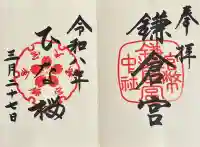 奉拝
鎌倉宮
官幣中社
鎌倉宮
令和八年
ひな櫻
三月二十七日